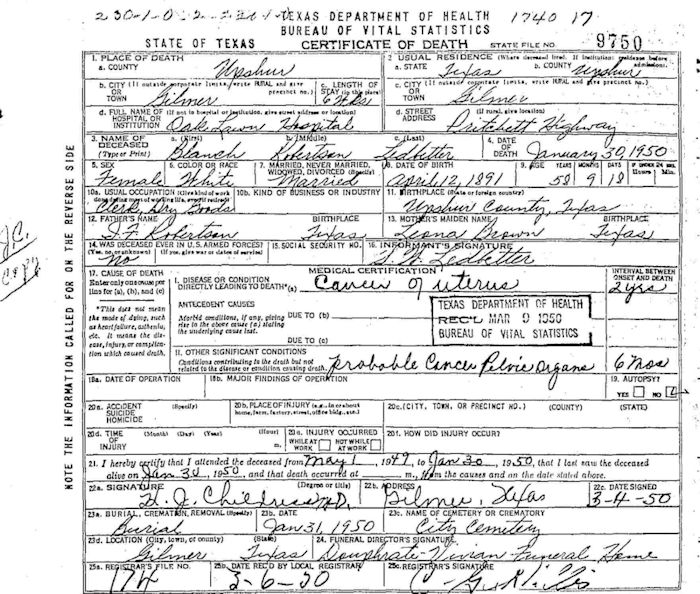 TEXAS DEPARTMENT OF HEALTH 1740 17
BUREAU OF VITAL STATISTICS
STATE OF TEXAS CERTIFICATE OF DEATH STATE FILE NO. 9750
1. PLACE OF DEATH 2. USUAL RESIDENCE (Where deceased lived. If institution: residence before admission).
a. COUNTY Upshur a. STATE Texas b. COUNTY Upshur
b. CITY (If outside corporate limits, write RURAL and give precinct no.) OR TOWN Gilmer c. LENGTH OF STAY (in this place) 6 Wks c. CITY (If outside corporate limits, write RURAL and give precinct no.) OR TOWN Gilmer
d. FULL NAME OF (If not in hospital or institution, give street address or location) HOSPITAL OR INSTITUTION Oak Lawn Hospital d. STREET ADDRESS (If rural, give location) Pritchett Highway
3. NAME OF DECEASED (Type or Print) a. (First) Blanch b. (Middle) Robertson c. (Last) Ledbetter 4. DATE OF DEATH January 30, 1950
5. SEX Female 6. COLOR OR RACE White 7. MARRIED, NEVER MARRIED, WIDOWED, DIVORCED (Specify) Married 8. DATE OF BIRTH April 12, 1891 9. AGE YEARS 58 MONTHS 9 DAYS 18 IF UNDER 24 HRS. Hours Min.
10a. USUAL OCCUPATION (Give kind of work done during most of working life, even if retired) Clerk, Dry Goods 10b. KIND OF BUSINESS OR INDUSTRY 11. BIRTHPLACE (State or foreign country) Upshur County, Texas
12. FATHER'S NAME BIRTHPLACE 13. MOTHER'S MAIDEN NAME BIRTHPLACE
Robertson Texas Leona Brown Texas
14. WAS DECEASED EVER IN U.S. ARMED FORCES? (Yes, no, or unknown) (If yes, give war or dates of service) No 15. SOCIAL SECURITY NO. 16. INFORMANT'S SIGNATURE Ledbetter
MEDICAL CERTIFICATION
17. CAUSE OF DEATH
Enter only one cause per line for (a), (b), and (c)
I. DISEASE OR CONDITION DIRECTLY LEADING TO DEATH* (a) Cancer of uterus INTERVAL BETWEEN ONSET AND DEATH 2 yrs
*This does not mean the mode of dying, such as heart failure, asthenia, etc. It means the disease, injury, or complication which caused death.
ANTECEDENT CAUSES
Morbid conditions, if any, giving rise to the above cause (a) stating the underlying cause last.
DUE TO (b)
DUE TO (c)
TEXAS DEPARTMENT OF HEALTH
REC'D MAR 9 1950
BUREAU OF VITAL STATISTICS
II. OTHER SIGNIFICANT CONDITIONS
Conditions contributing to the death but not related to the disease or condition causing death. Probable Cancer Pelvic Organs 6 Mos
18a. DATE OF OPERATION 18b. MAJOR FINDINGS OF OPERATION 19. AUTOPSY? YES NO
20a. ACCIDENT SUICIDE HOMICIDE (Specify) 20b. PLACE OF INJURY (e.g., in or about home, farm, factory, street, office bldg., etc.) 20c. (CITY, TOWN, OR PRECINCT NO.) (COUNTY) (STATE)
20d. TIME OF INJURY (Month) (Day) (Year) (Hour) m. 20e. INJURY OCCURRED WHILE AT WORK NOT WHILE AT WORK 20f. HOW DID INJURY OCCUR?
21. I hereby certify that I attended the deceased from May 1, 1949, to Jan 30, 1950, that I last saw the deceased
alive on Jan 30, 1950, and that death occurred at m., from the causes and on the date stated above.
22a. SIGNATURE (Degree or title) 22b. ADDRESS 22c. DATE SIGNED
Childress M.D. Gilmer, Texas 3-4-50
23a. BURIAL, CREMATION, REMOVAL (Specify) 23b. DATE 23c. NAME OF CEMETERY OR CREMATORY
Burial Jan 31, 1950 City Cemetery
23d. LOCATION (City, town, or county) (State) 24. FUNERAL DIRECTOR'S SIGNATURE
Gilmer Texas Douphrate-Vivian Funeral Home
25a. REGISTRAR'S FILE NO. 25b. DATE REC'D BY LOCAL REGISTRAR 25c. REGISTRAR'S SIGNATURE
174 3-6-50
NOTE THE INFORMATION CALLED FOR ON THE REVERSE SIDE